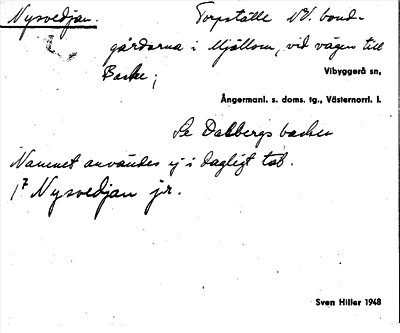 Nysvedjan. Torpställe NV. bond-
gårdarna i Mjällom, vid vägen till
Barke;
Vibyggerå sn,
Ångermanl. s. doms. tg., Västernorrl. l.
Se Dahlbergs backen
Namnet användes ej i dagligt tal.
Nysvedjan jr.
Sven Hiller 1948